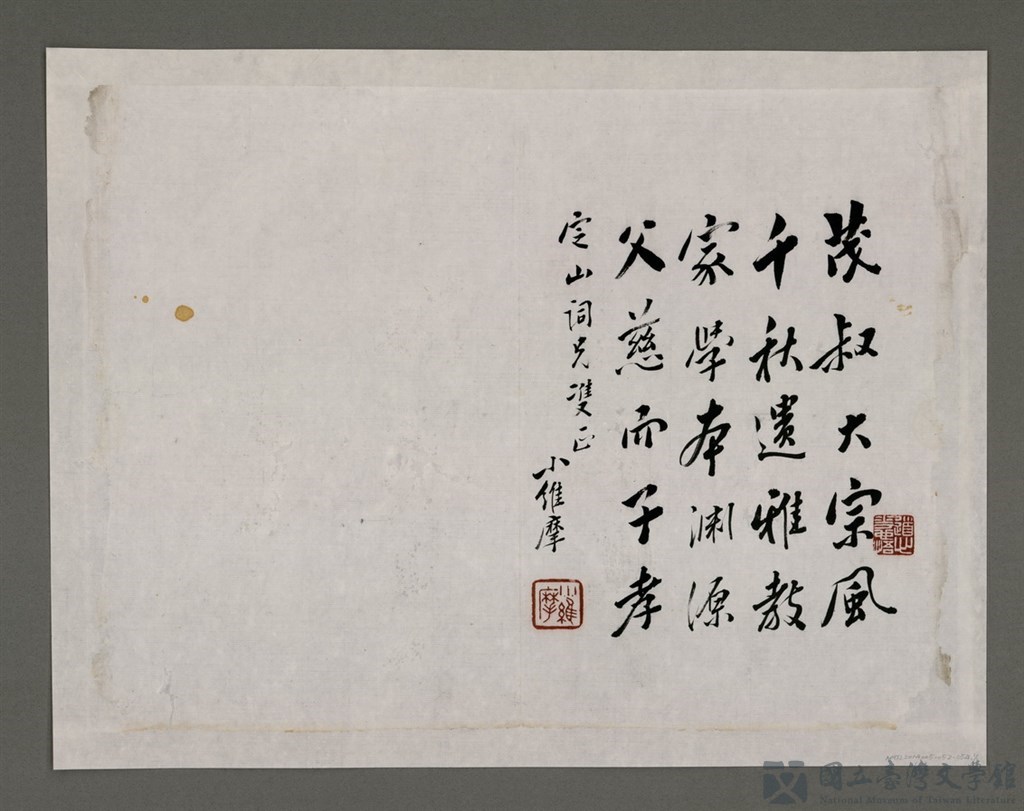 茂叔大宗風
千秋遺雅教
家學本渊源
父慈而子孝
定山詞兄雙正
小維摩
小維摩
國立臺灣文學館
National Museum of Taiwan Literature